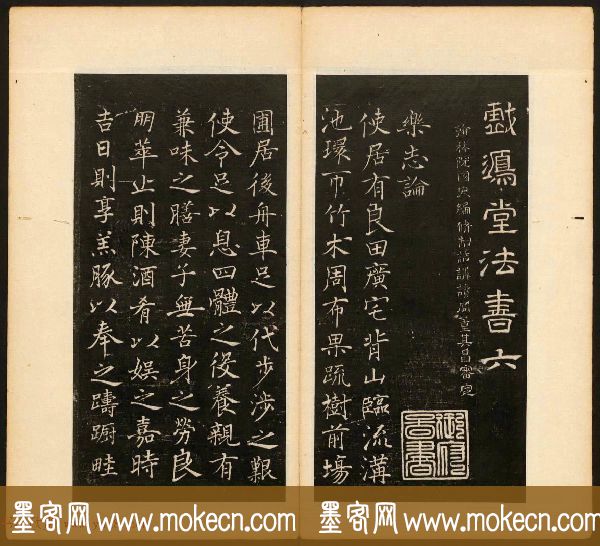 戲鴻堂法書六
翰林院國史編修制誥講讀官董其昌審定
樂志論
使居有良田廣宅背山臨流溝
池環帀竹木周布果蔬樹前場
圃居後舟車足以代步涉之艱
使令足以息四體之役養親有
兼味之膳妻子無苦身之勞良
朋萃止則陳酒肴以娛之嘉時
吉日則享羔豚以奉之躊躕畦
墨客网 www.mokecn.com 墨客网 www.mokecn.com